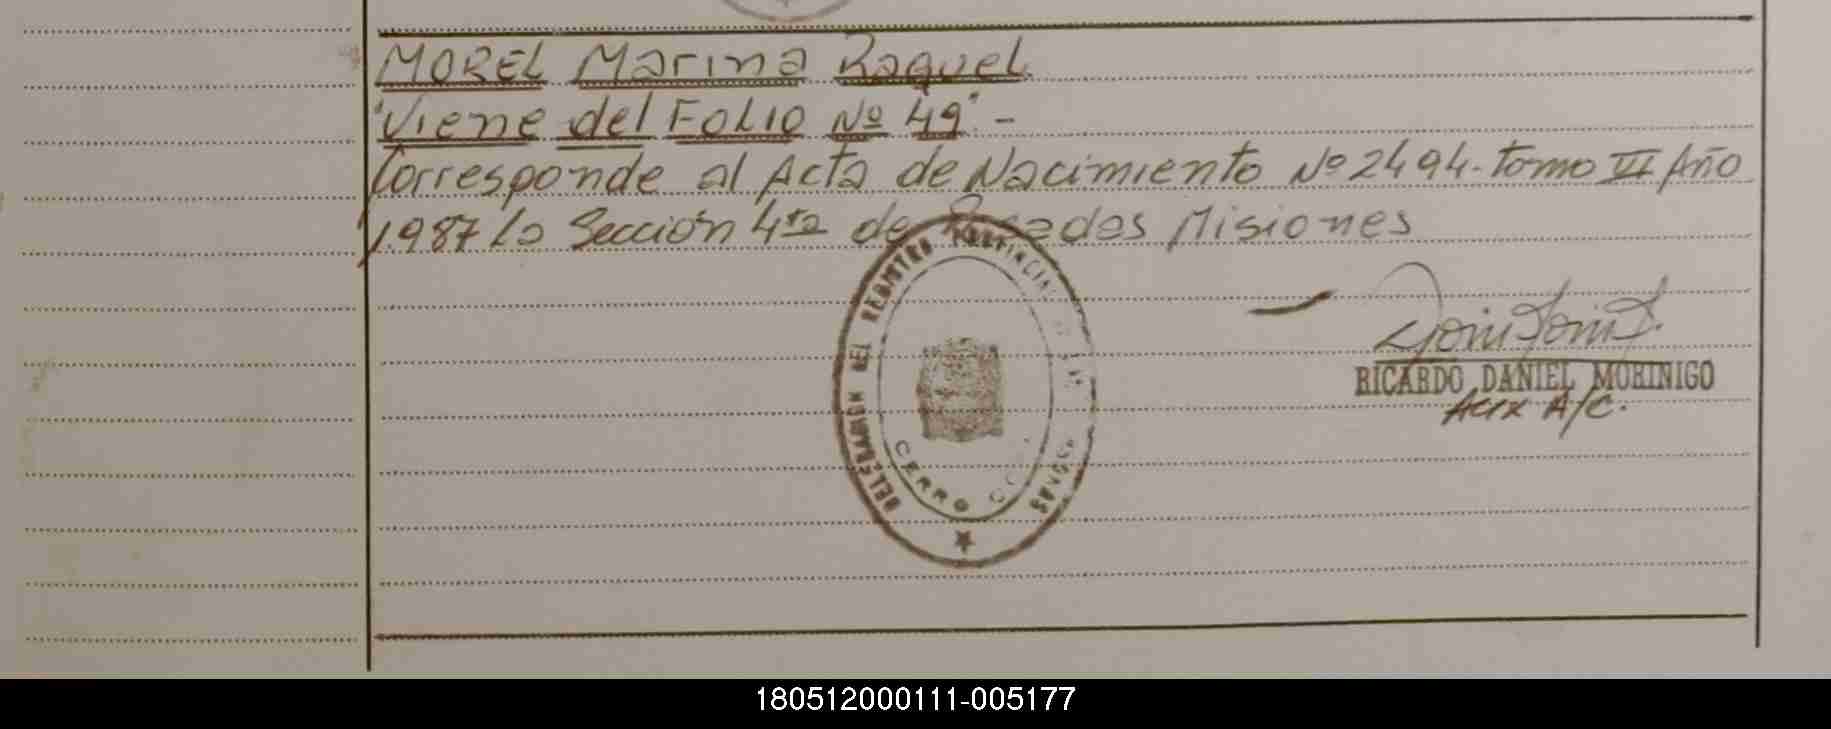 MOREL Marina Raquel
"Viene del Folio Nº 49" -
Corresponde al Acta de Nacimiento Nº 2494. Tomo VI Año
1.987 La Sección 4ta de Posadas Misiones
DELEGACION DEL REGISTRO PROVINCIAL DE LAS PERSONAS
CERRO
RICARDO DANIEL MORINIGO
Aux A/C.
180512000111-005177